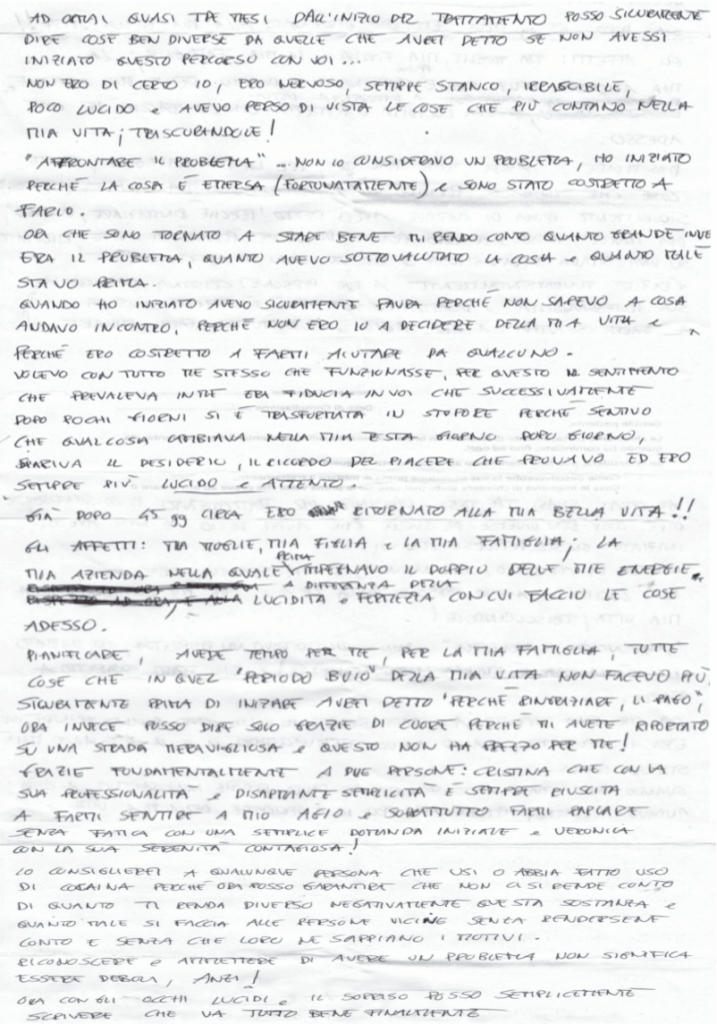 AD ORMAI QUASI TRE MESI DALL'INIZIO DEL TRATTAMENTO POSSO SICURAMENTE
DIRE COSE BEN DIVERSE DA QUELLE CHE AVREI DETTO SE NON AVESSI
INIZIATO QUESTO PERCORSO CON VOI...
NON ERO DI CERTO IO, ERO NERVOSO, SEMPRE STANCO, IRRASCIBILE,
POCO LUCIDO e AVEVO PERSO DI VISTA LE COSE CHE PIÙ CONTANO NELLA
MIA VITA; TRASCURANDOLE!
"AFFRONTARE IL PROBLEMA"... NON LO CONSIDERAVO UN PROBLEMA, HO INIZIATO
PERCHÈ LA COSA È EMERSA (FORTUNATAMENTE) e SONO STATO COSTRETTO A
FARLO.
ORA CHE SONO TORNATO A STARE BENE MI RENDO CONTO QUANTO GRANDE INVE
ERA IL PROBLEMA, QUANTO AVEVO SOTTOVALUTATO LA COSA e QUANTO MALE
STAVO PRIMA.
QUANDO HO INIZIATO AVEVO SICURAMENTE PAURA PERCHÈ NON SAPEVO A COSA
ANDAVO INCONTRO, PERCHÈ NON ERO IO A DECIDERE DELLA MIA VITA e
PERCHÈ ERO COSTRETTO A FARMI AIUTARE DA QUALCUNO.
VOLEVO CON TUTTO ME STESSO CHE FUNZIONASSE, PER QUESTO IL SENTIMENTO
CHE PREVALEVA IN ME ERA FIDUCIA IN VOI CHE SUCCESSIVAMENTE
DOPO POCHI GIORNI SI È TRASFORMATA IN STUPORE PERCHÈ SENTIVO
CHE QUALCOSA CAMBIAVA NELLA MIA TESTA GIORNO DOPO GIORNO,
SPARIVA IL DESIDERIO, IL RICORDO DEL PIACERE CHE PROVAVO ED ERO
SEMPRE PIÙ LUCIDO e ATTENTO.
GIÀ DOPO 45 gg CIRCA ERO RITORNATO ALLA MIA BELLA VITA!!
GLI AFFETTI: MIA MOGLIE, MIA FIGLIA e LA MIA FAMIGLIA; LA
MIA AZIENDA NELLA QUALE PRIMA IMPEGNAVO IL DOPPIO DELLE MIE ENERGIE
A DIFFERENZA DELLA LUCIDITÀ e FERMEZZA CON CUI FACCIO LE COSE
ADESSO.
PIANIFICARE, AVERE TEMPO PER ME, PER LA MIA FAMIGLIA, TUTTE
COSE CHE IN QUEL "PERIODO BUIO" DELLA MIA VITA NON FACEVO PIÙ.
SICURAMENTE PRIMA DI INIZIARE AVREI DETTO "PERCHÈ RINGRAZIARE, LI PAGO",
ORA INVECE POSSO DIRE SOLO GRAZIE DI CUORE PERCHÈ MI AVETE RIPORTATO
SU UNA STRADA MERAVIGLIOSA e QUESTO NON HA PREZZO PER ME!
GRAZIE FONDAMENTALMENTE A DUE PERSONE: CRISTINA CHE CON LA
SUA PROFESSIONALITÀ e DISARMANTE SEMPLICITÀ È SEMPRE RIUSCITA
A FARMI SENTIRE A MIO AGIO e SOPRATTUTTO FARMI PARLARE
SENZA FATICA CON UNA SEMPLICE DOMANDA INIZIALE e VERONICA
CON LA SUA SERENITÀ CONTAGIOSA!
LO CONSIGLIEREI A QUALUNQUE PERSONA CHE USI O ABBIA FATTO USO
DI COCAINA PERCHÈ ORA POSSO GARANTIRE CHE NON CI SI RENDE CONTO
DI QUANTO TI RENDA DIVERSO NEGATIVAMENTE QUESTA SOSTANZA e
QUANTO MALE SI FACCIA ALLE PERSONE VICINE SENZA RENDERSENE
CONTO E SENZA CHE LORO NE SAPPIANO I MOTIVI.
RICONOSCERE e AMMETTERE DI AVERE UN PROBLEMA NON SIGNIFICA
ESSERE DEBOLI, ANZI!
ORA CON GLI OCCHI LUCIDI e IL SORRISO POSSO SEMPLICEMENTE
SCRIVERE CHE VA TUTTO BENE FINALMENTE